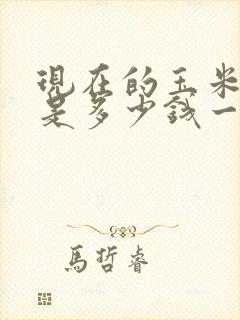 現在的玉米
是多少錢一
馬哲睿